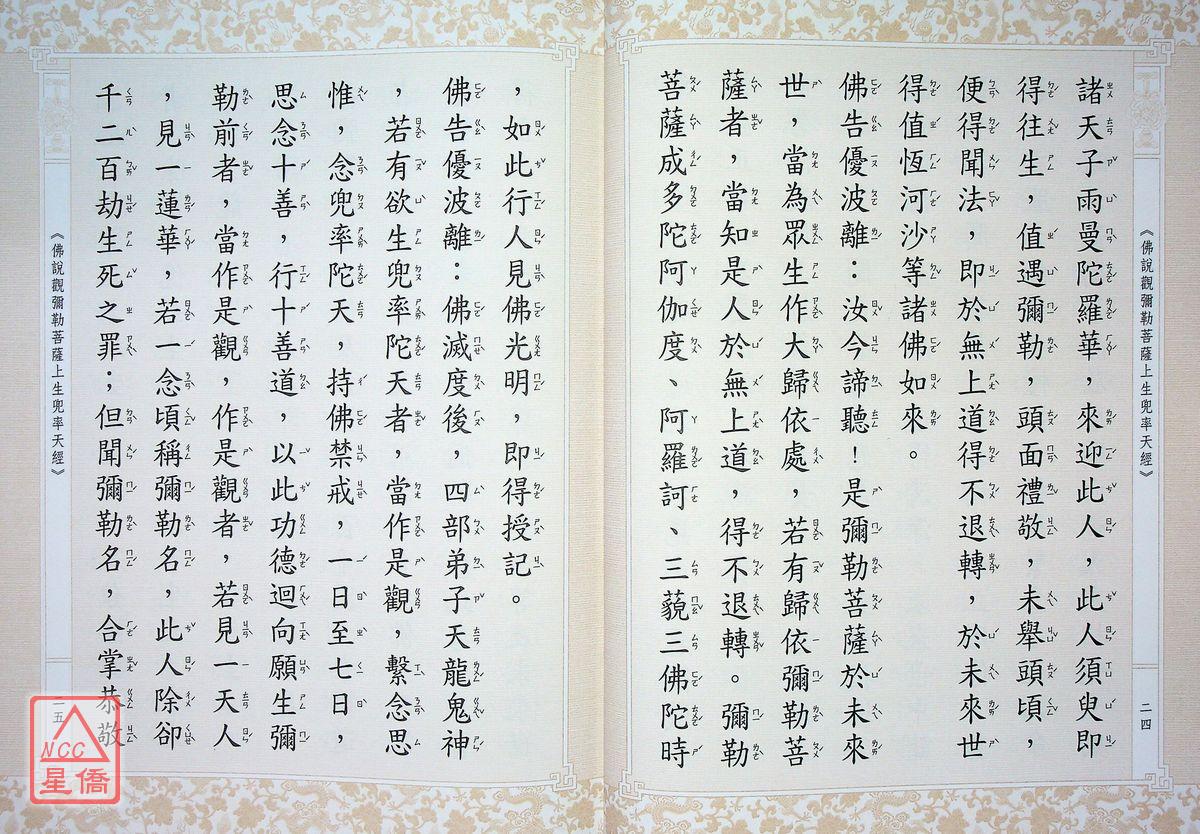 《佛說觀彌勒菩薩上生兜率天經》
二四
諸天子雨曼陀羅華，來迎此人，此人須臾即
得往生，值遇彌勒，頭面禮敬，未舉頭頃，
便得聞法，即於無上道得不退轉，於未來世
得值恆河沙等諸佛如來。
佛告優波離：汝今諦聽！是彌勒菩薩於未來
世，當為眾生作大歸依處，若有歸依彌勒菩
薩者，當知是人於無上道，得不退轉。彌勒
菩薩成多陀阿伽度、阿羅訶、三藐三佛陀時
，如此行人見佛光明，即得授記。
佛告優波離：佛滅度後，四部弟子天龍鬼神
，若有欲生兜率陀天者，當作是觀，繫念思
惟，念兜率陀天，持佛禁戒，一日至七日，
思念十善，行十善道，以此功德迴向願生彌
勒前者，當作是觀，作是觀者，若見一天人
，見一蓮華，若一念頃稱彌勒名，此人除卻
千二百劫生死之罪；但聞彌勒名，合掌恭敬
《佛說觀彌勒菩薩上生兜率天經》
二五
NCC
星僑